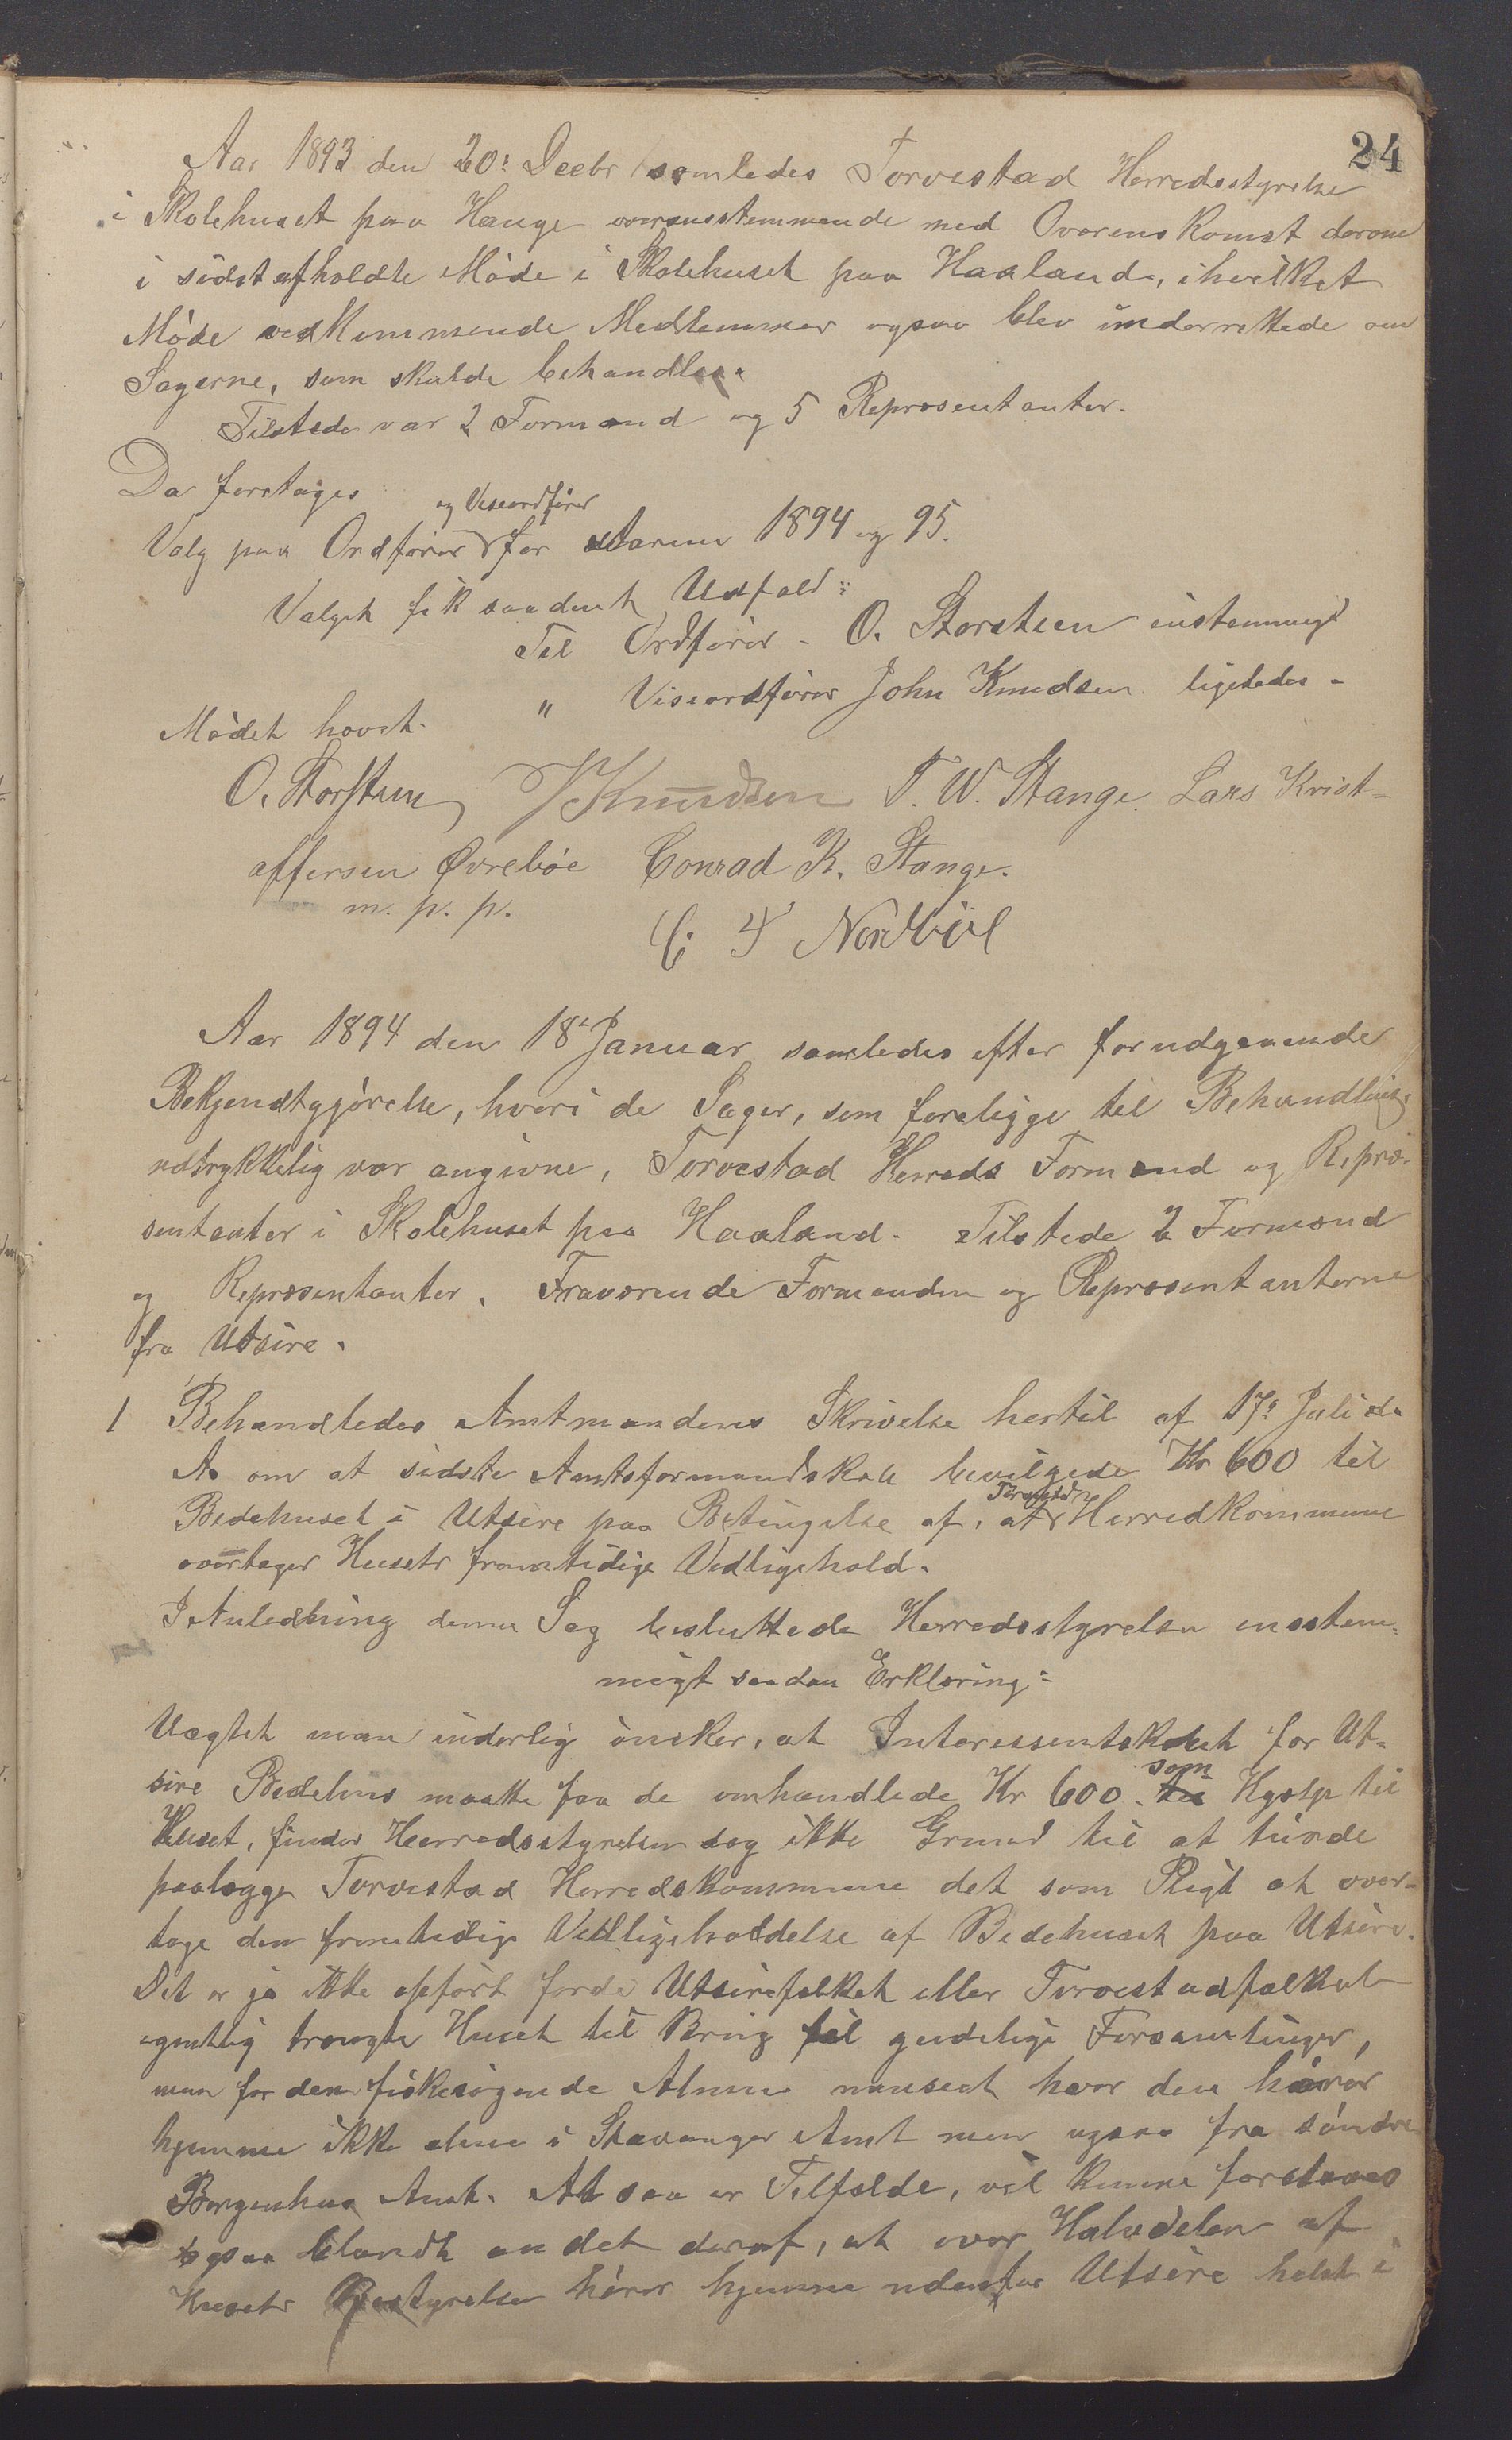 24
Aar 1893 den 20: Decbr samledes Torvestad Herredsstyrelse
i Skolehuset paa Hauge overensstemmende med Overenskomst derom
i sidst afholdte Møde i Skolehuset paa Haaland, i hvilket
Møde vedkommende Medlemmer ogsaa blev underrettede om
Sagerne, som skulde behandles.
Tilstede var 2 Formænd og 5 Repræsentanter.
Da foretages
og Viseordfører
Valg paa Ordfører for Aarene 1894 og 95.
Valget fik saadant Udfald:
Til Ordfører - O. Storsteen enstemmigt
" Viseordfører John Knudsen ligeledes -
Mødet hævet.
O. Storsteen J Knudsen T. W. Stange. Lars Krist-
offersen Øvrebøe Conrad K. Stange.
m. p. p.
C. Nordbøe
Aar 1894 den 18: Januar samledes efter forudgaaende
Bekjendtgjørelse, hvori de Sager, som foreligge til Behandling
udtrykkelig var angivne, Torvestad Herreds Formænd og Repræ-
sentanter i Skolehuset paa Haaland. Tilstede 2 Formænd
og Repræsentanter. Fraværende Formanden og Repræsentanterne
fra Utsire.
1 Behandledes Amtmandens Skrivelse hertil af 17: Juli d.
A. om at sidste Amtsformandskab bevilgede Kr 600 til
Torvestad
Bedehuset i Utsire paa Betingelse af, at Herredkommune
overtager Husets fremtidige Vedligehold.
I Anledning denne Sag besluttede Herredsstyrelsen enstem-
migt saadan Erklæring:
Uagtet man inderlig ønsker, at Interessentskabet for Ut-
som
sire Bedehus maatte faa de omhandlede Kr 600. til Hjælp til
Huset, finder Herredsstyrelsen dog ikke Grund til at turde
paalægge Torvestad Herredskommune det som Pligt at over-
tage den fremtidige Vedligeholdelse af Bedehuset paa Utsire.
Det er jo ikke opført fordi Utsirefolket eller Torvestadfolket
egentlig trængte Huset til Brug til gudelige Forsamlinger,
men for den fiskesøgende Almue uanseet hvor den hører
hjemme ikke alene i Stavanger Amt men ogsaa fra søndre
Bergenhus Amt. At saa er Tilfælde, vil kunne forstaaes
ogsaa blandt andet deraf, at over Halvdelen af
Husets Bestyrelse hører hjemme udenfor Utsire helst i